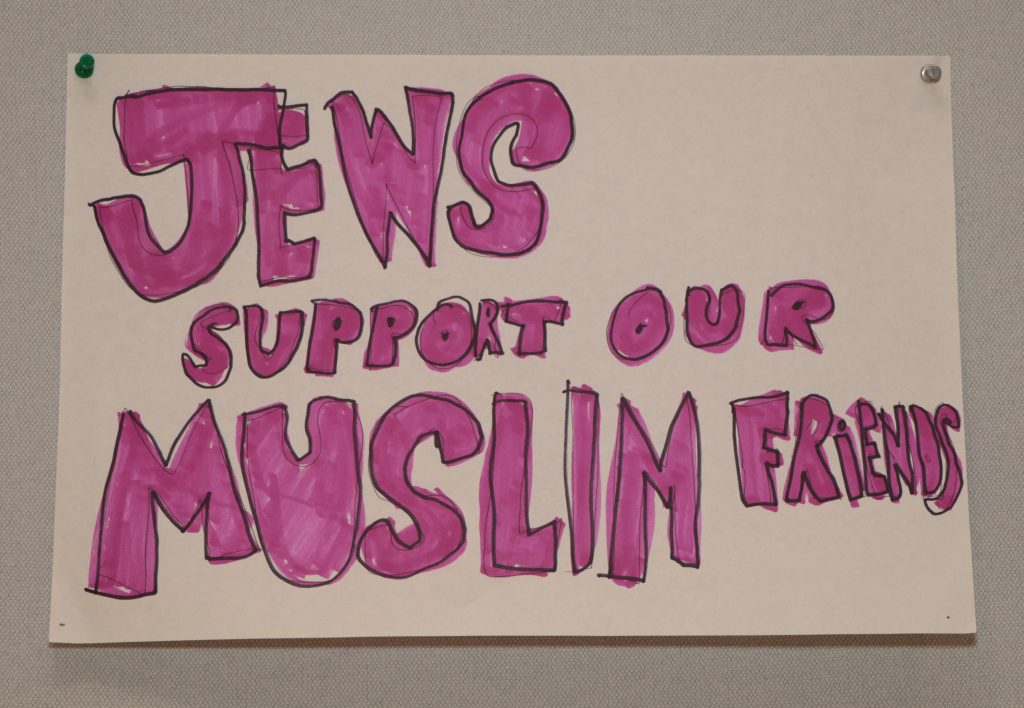 JEWS
SUPPORT OUR
MUSLIM FRiENDS